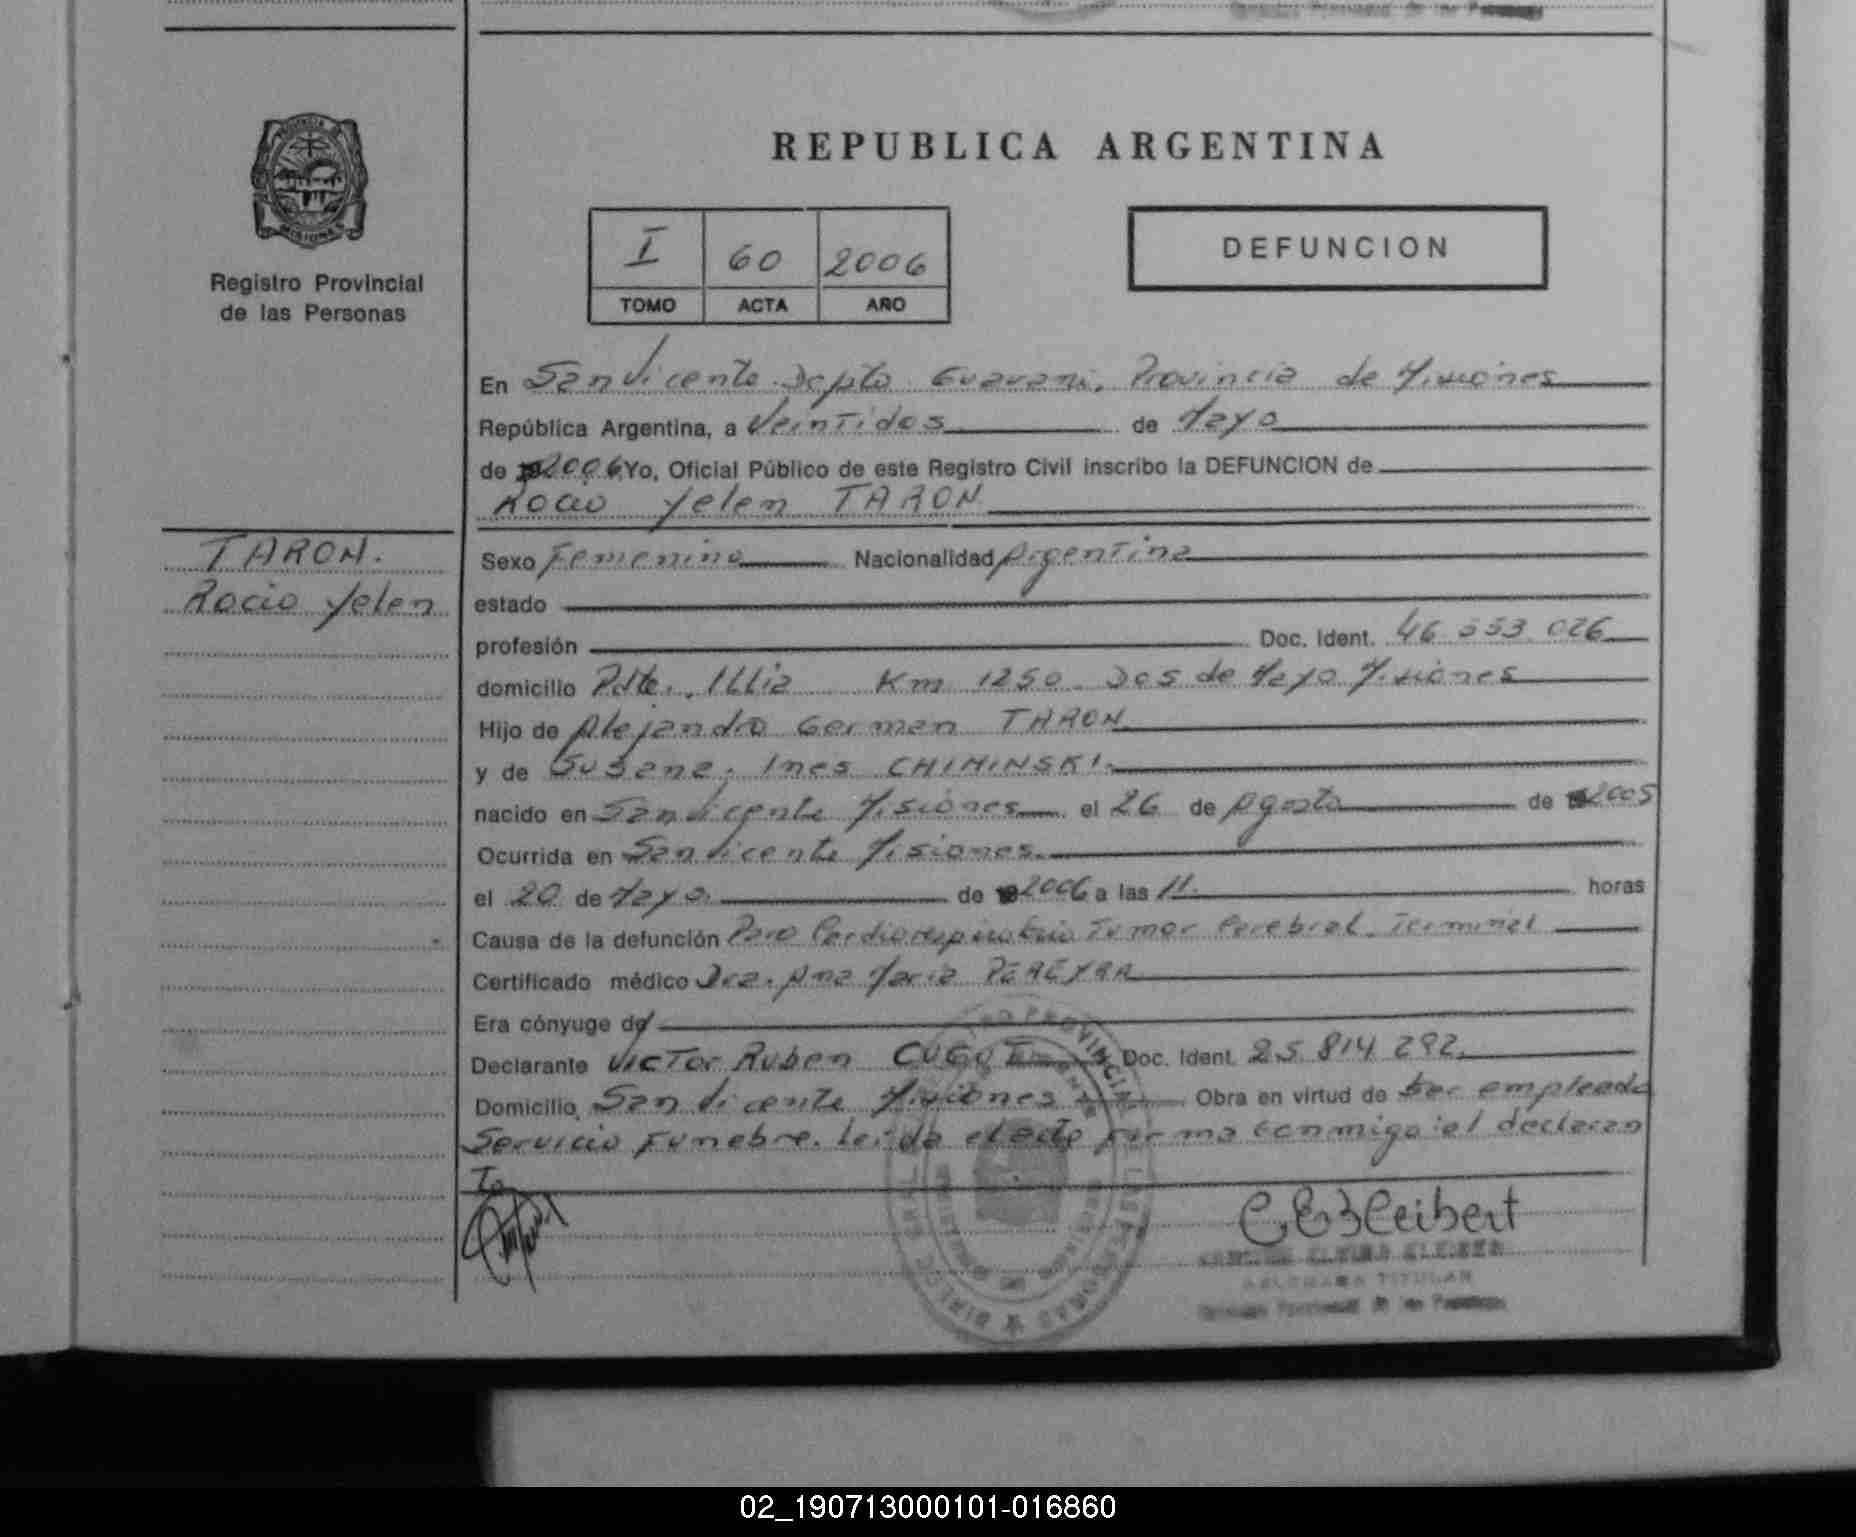 REPUBLICA ARGENTINA
PROVINCIA DE
MISIONES
Registro Provincial
de las Personas
I 60 2006
TOMO ACTA AÑO
DEFUNCION
En San Vicente Depto Guarani, Provincia de Misiones
República Argentina, a Veintidos de Mayo
de 2006 Yo, Oficial Público de este Registro Civil inscribo la DEFUNCION de
Rocio Yelen TARON
TARON.
Rocio Yelen
Sexo Femenino Nacionalidad Argentina
estado
profesión Doc. Ident. 46 333 026
domicilio Pdte. Illia Km 1250. Dos de Mayo Misiones
Hijo de Alejandro German TARON
y de Susana Ines CHIMINSKI.
nacido en San Vicente Misiones el 26 de Agosto de 2005
Ocurrida en San Vicente Misiones.
el 20 de Mayo de 2006 a las 11. horas
Causa de la defunción Paro Cardiorespiratorio Tumor Cerebral Terminal
Certificado médico Dra. Ana Maria PEREYRA
Era cónyuge de
Declarante Victor Ruben Doc. Ident. 25 814 292
Domicilio San Vicente Misiones Obra en virtud de Ser empleado
Servicio Funebre. Leida el acta firma conmigo el declaran
te
TITULAR
02_190713000101-016860